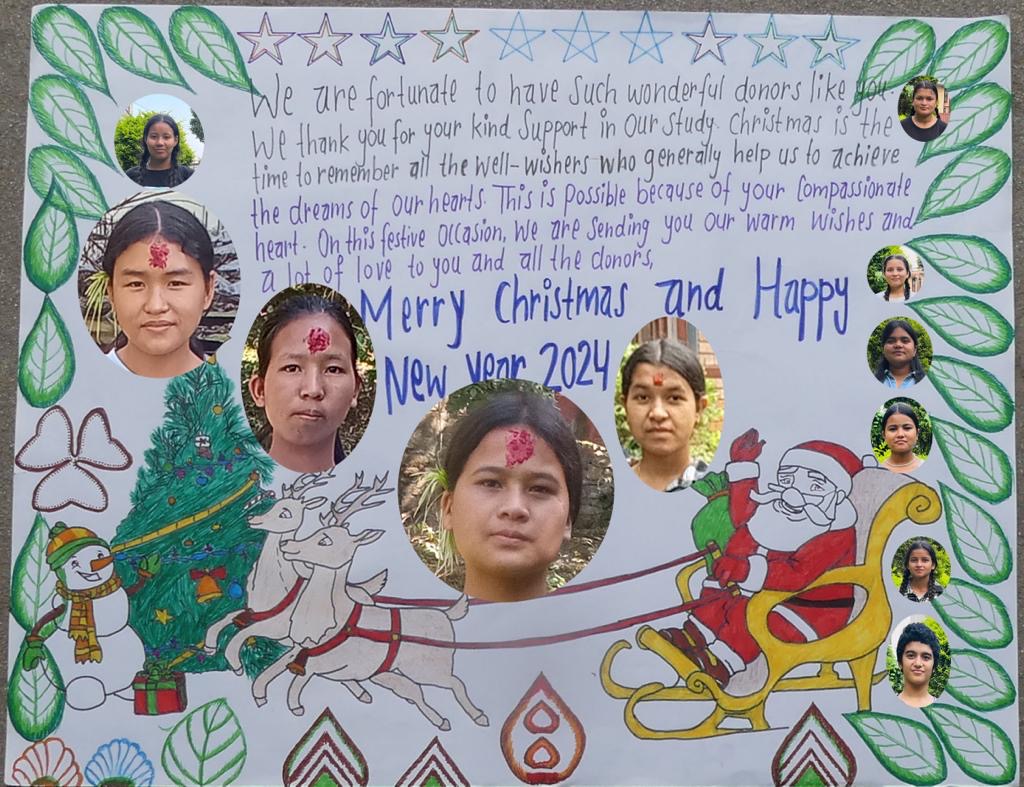 We are fortunate to have such wonderful donors like you
We thank you for your kind support in our study. Christmas is the
time to remember all the well-wishers who generally help us to achieve
the dreams of our hearts. This is possible because of your compassionate
heart. On this festive occasion, we are sending you our warm wishes and
a lot of love to you and all the donors,
Merry Christmas and Happy
New Year 2024